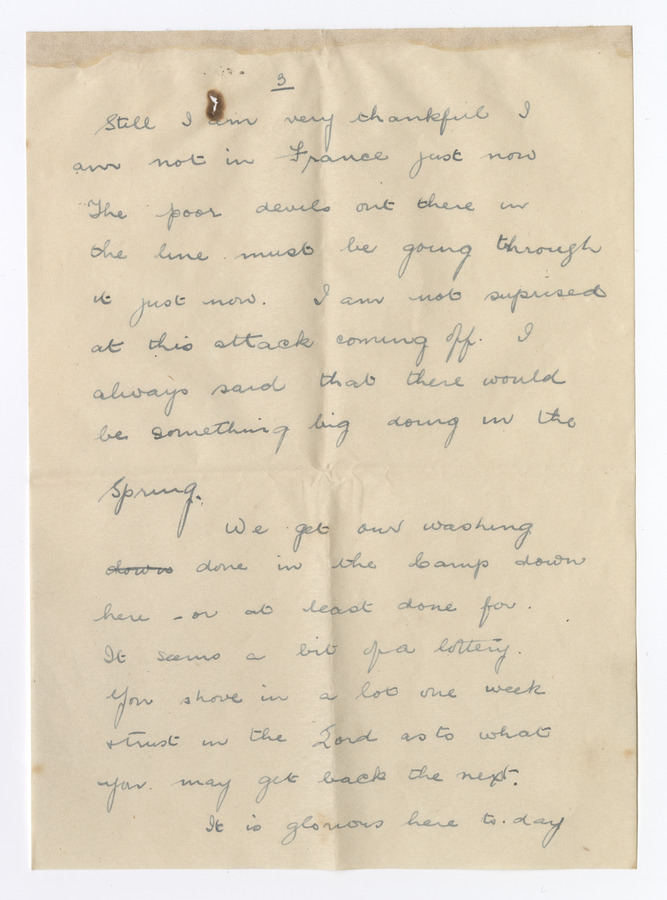 3
Still I am very thankful I
am not in France just now
The poor devils out there in
the line must be going through
it just now. I am not suprised
at this attack coming off. I
always said that there would
be something big doing in the
Spring.
We get our washing
down done in the Camp down
here - or at least done for.
It seems a bit of a lottery.
You shove in a lot one week
& trust in the Lord as to what
you may get back the next.
It is glorious here to-day